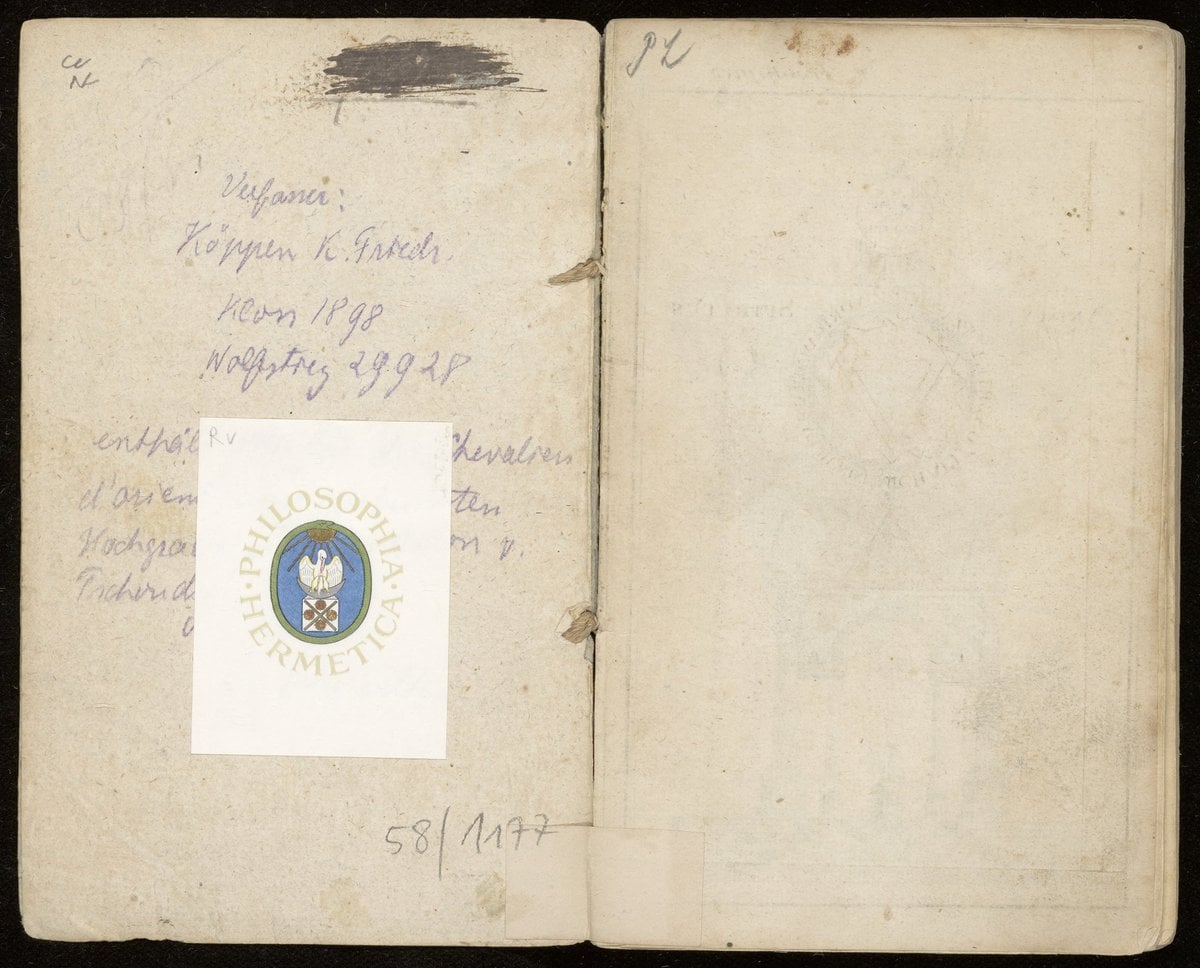 Verfasser:
Köppen K. Friedr.
Kloss 1898
Wolfstieg 29928
enthäl Chevalier
d'orien ten
Hochgra on v.
Tschoud
RV
· PHILOSOPHIA · HERMETICA
58/1177
PL